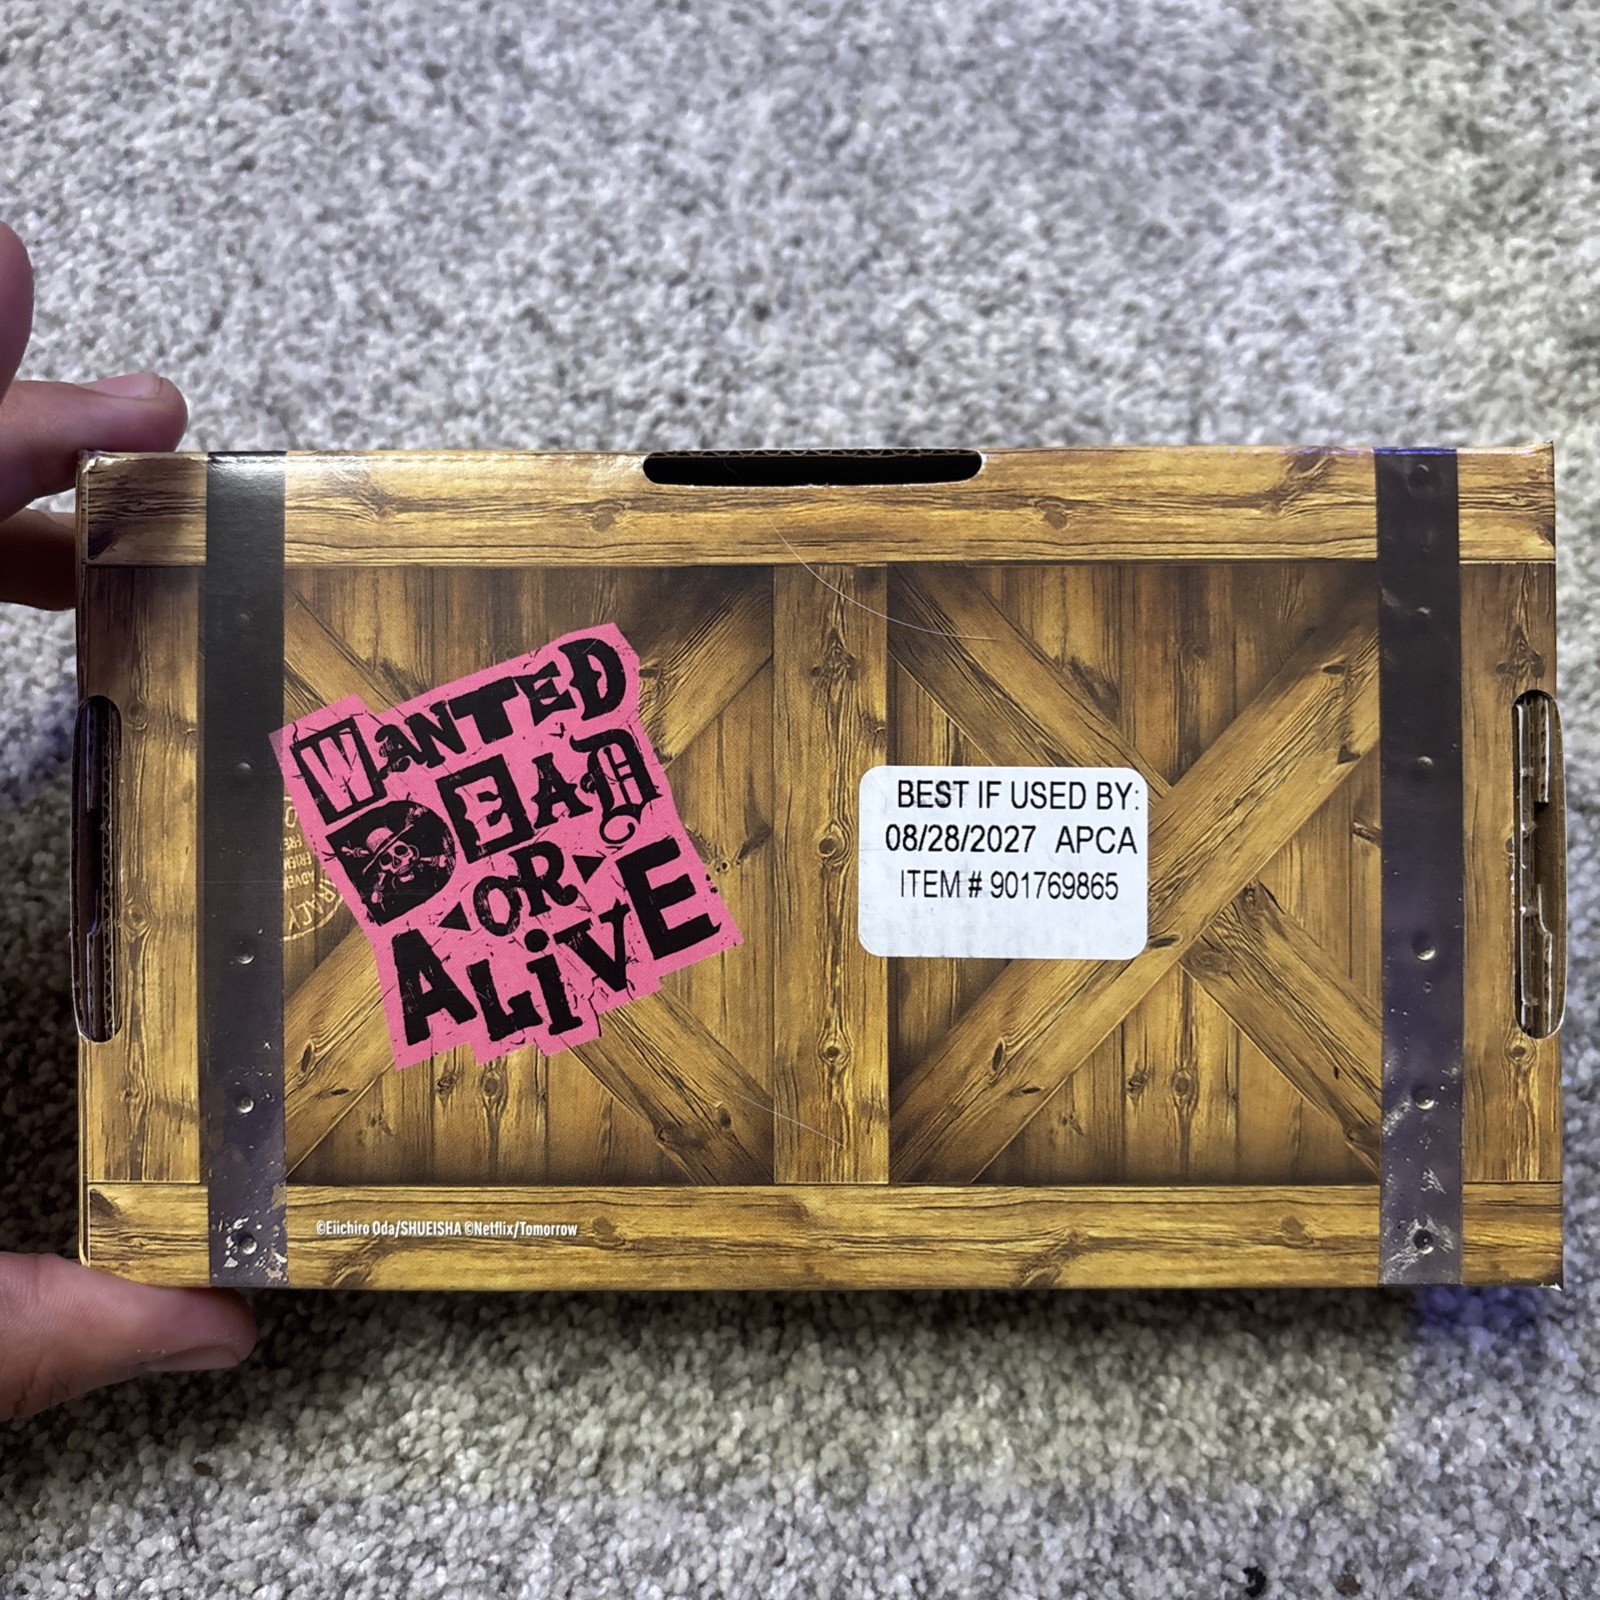 WANTED
DEAD
OR
ALiVE
BEST IF USED BY:
08/28/2027 APCA
ITEM # 901769865
©Eiichiro Oda/SHUEISHA ©Netflix/Tomorrow